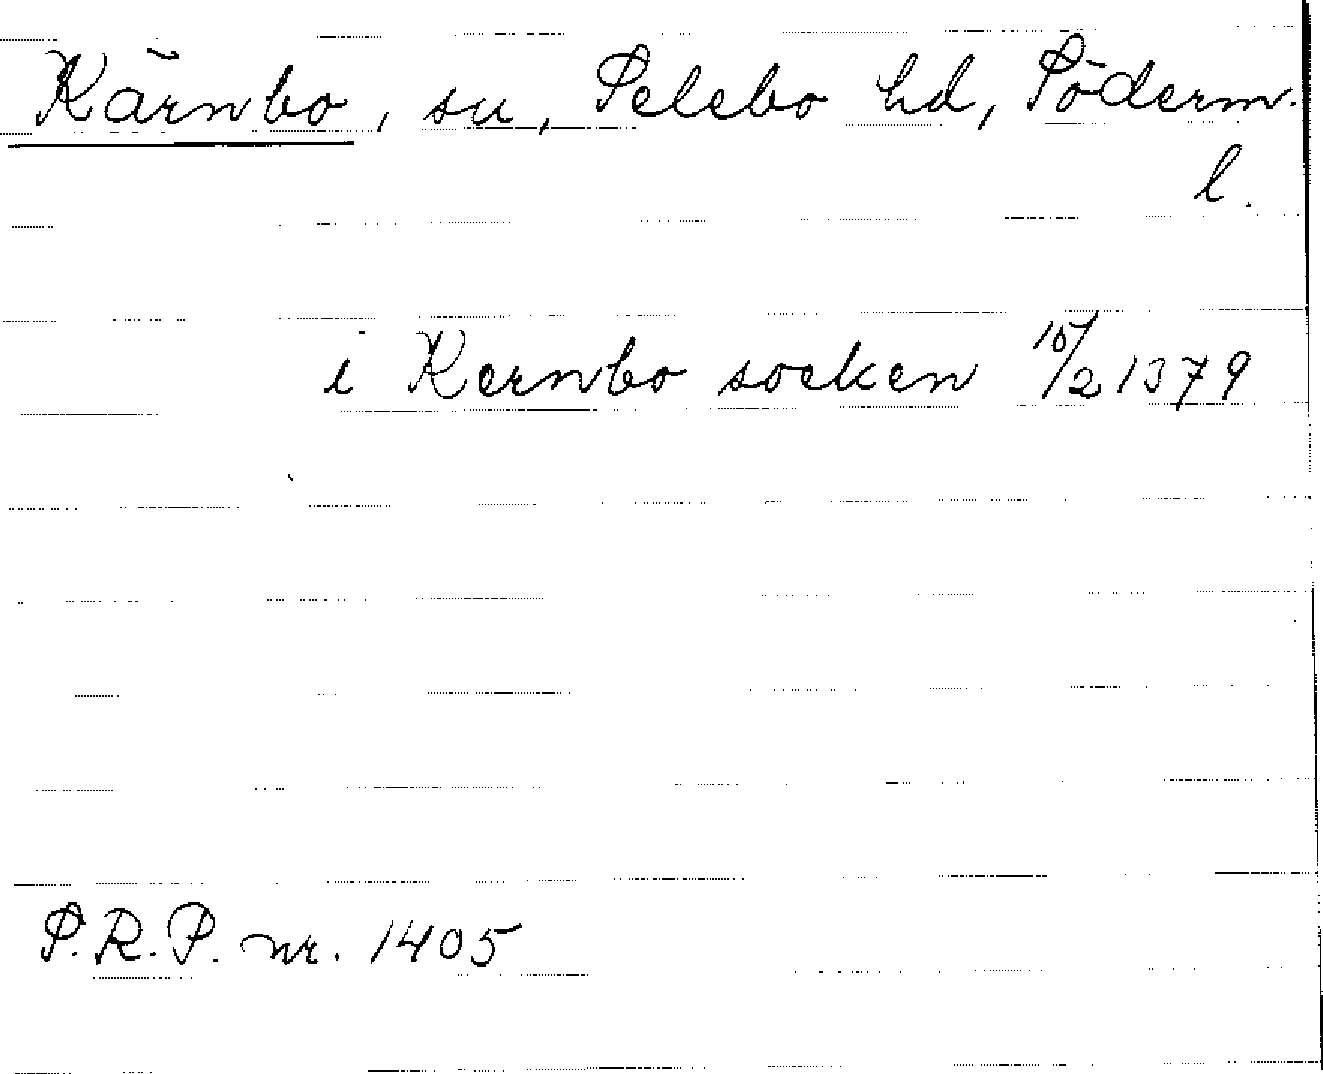 Kärnbo, sn, Selebo hd, Söderm.
l.
i Kernbo socken 15/2 1379
S.R.P. nr. 1405